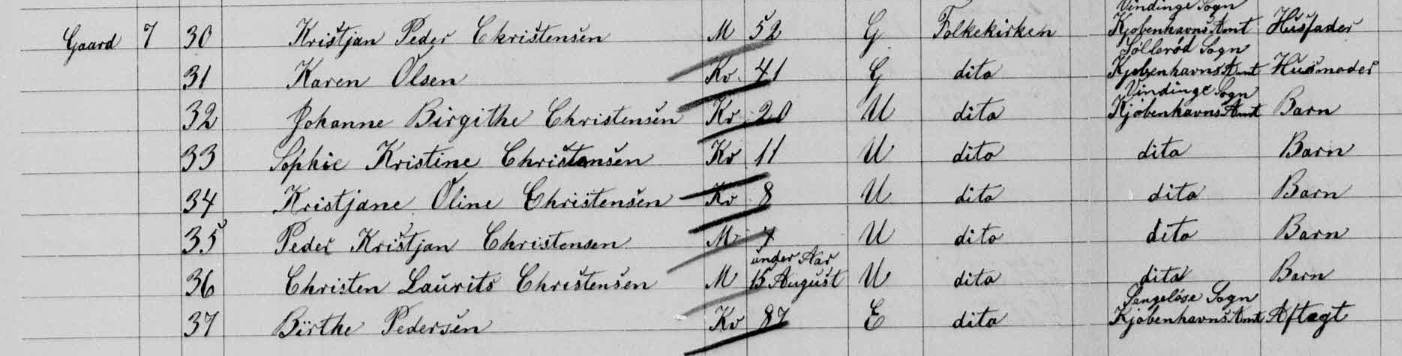 Vindinge Sogn
Gaard 7 30 Kristjan Peder Christensen M 52 G Folkekirken Kjøbenhavns Amt Husfader
Söllerød Sogn
31 Karen Olsen Kv 41 G dito Kjøbenhavns Amt Husmoder
Vindinge Sogn
32 Johanne Birgithe Christensen Kv 20 U dito Kjøbenhavns Amt Barn
33 Sophie Kristine Christensen Kv 11 U dito dito Barn
34 Kristjane Oline Christensen Kv 8 U dito dito Barn
35 Peder Kristjan Christensen M U dito dito Barn
under Aar
36 Christen Laurits Christensen M 15 August U dito dito Barn
Sengeløse Sogn
37 Birthe Pedersen Kv 87 E dito Kjøbenhavns Amt Aftægt